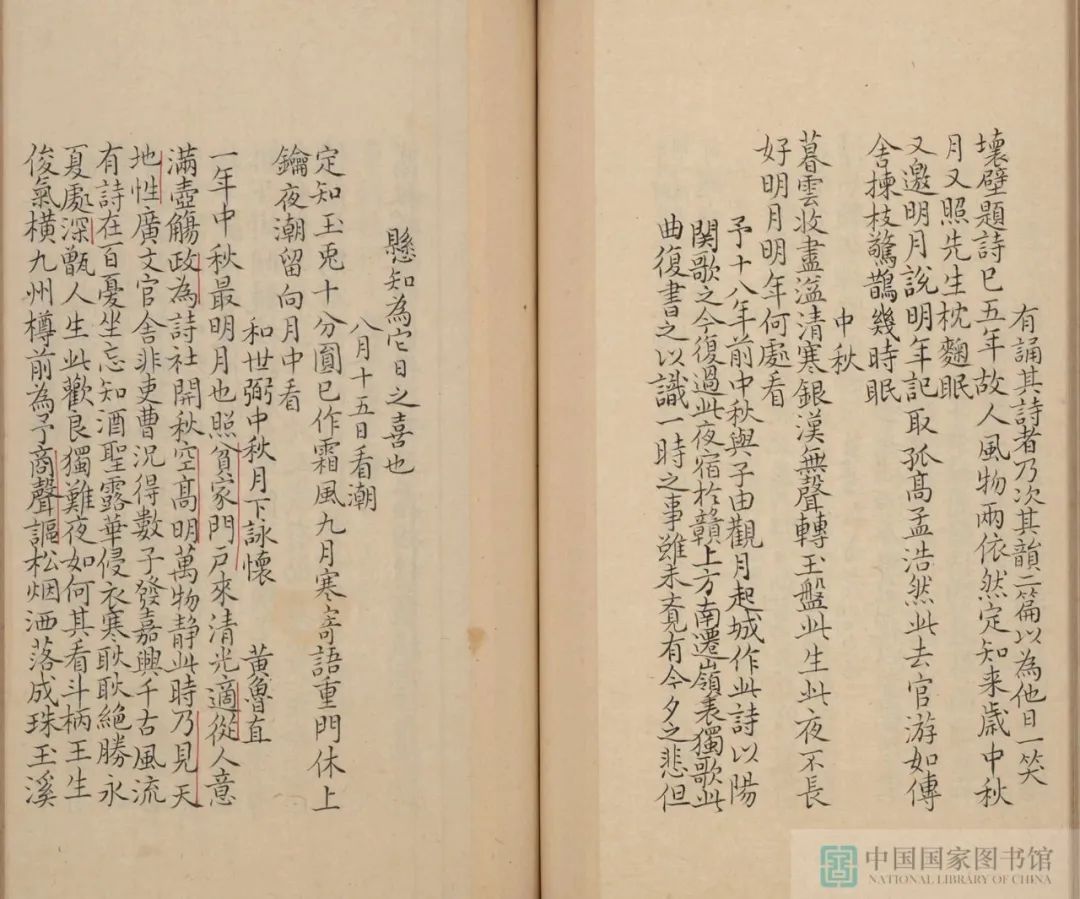 有誦其詩者乃次其韻二篇以為他日一笑
壊壁題詩已五年故人風物兩依然定知来歲中秋
月又照先生枕麴眠
又邀明月說明年記取孤髙孟浩然此去官游如傳
舍揀枝驚鵲幾時眠
中秋
暮雲收盡溢清寒銀漢無聲轉玉盤此生此夜不長
好明月明年何處看
予十八年前中秋與子由觀月起城作此詩以陽
関歌之今復過此夜宿扵贛上方南遷嶺表獨歌此
曲復書之以識一時之事雖未覺有今夕之悲但
懸知為它日之喜也
八月十五日看潮
定知玉兎十分圓已作霜風九月寒寄語重門休上
鑰夜潮留向月中看
和世弼中秋月下詠懷 黃魯直
一年中秋最明月也照貧家門戸來清光適從人意
滿壺觴政為詩社開秋空髙明萬物静此時乃見天
地性廣文官舍非吏曹況得數子發嘉興千古風流
有詩在百憂坐忘知酒聖露華侵衣寒耿耿絕勝永
夏處深甑人生此歡良獨難夜如何其看斗柄王生
俊氣橫九州樽前為予商聲謳松烟洒落成珠玉溪
中国国家图书馆
NATIONAL LIBRARY OF CHINA